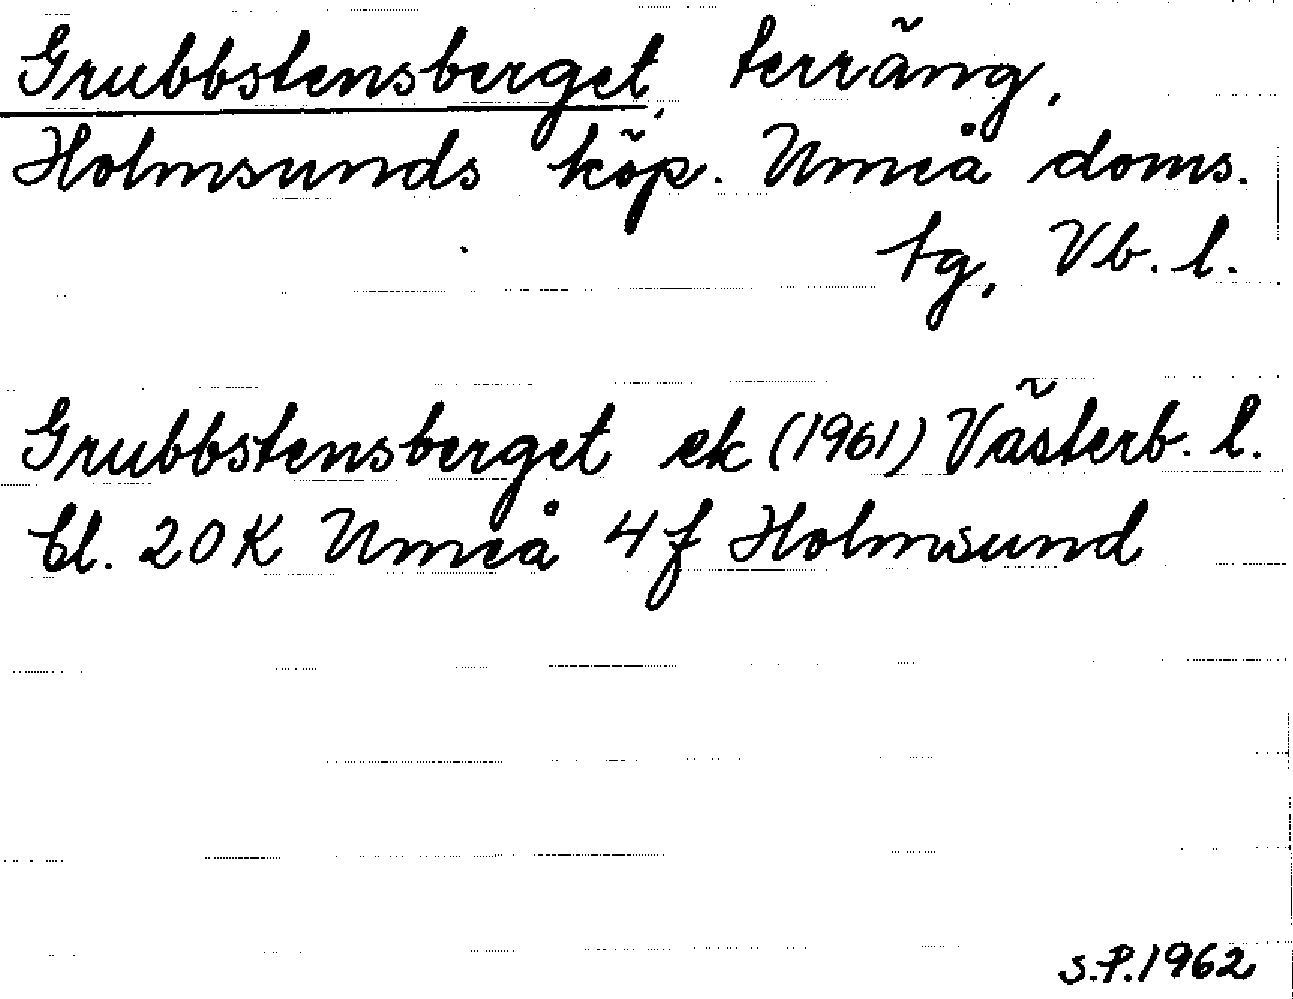 Grubbstensberget, terräng,
Holmsunds köp. Umeå doms.
tg, Vb. l.
Grubbstensberget ek (1961) Västerb. l.
bl. 20 K Umeå 4 f Holmsund
S.P. 1962